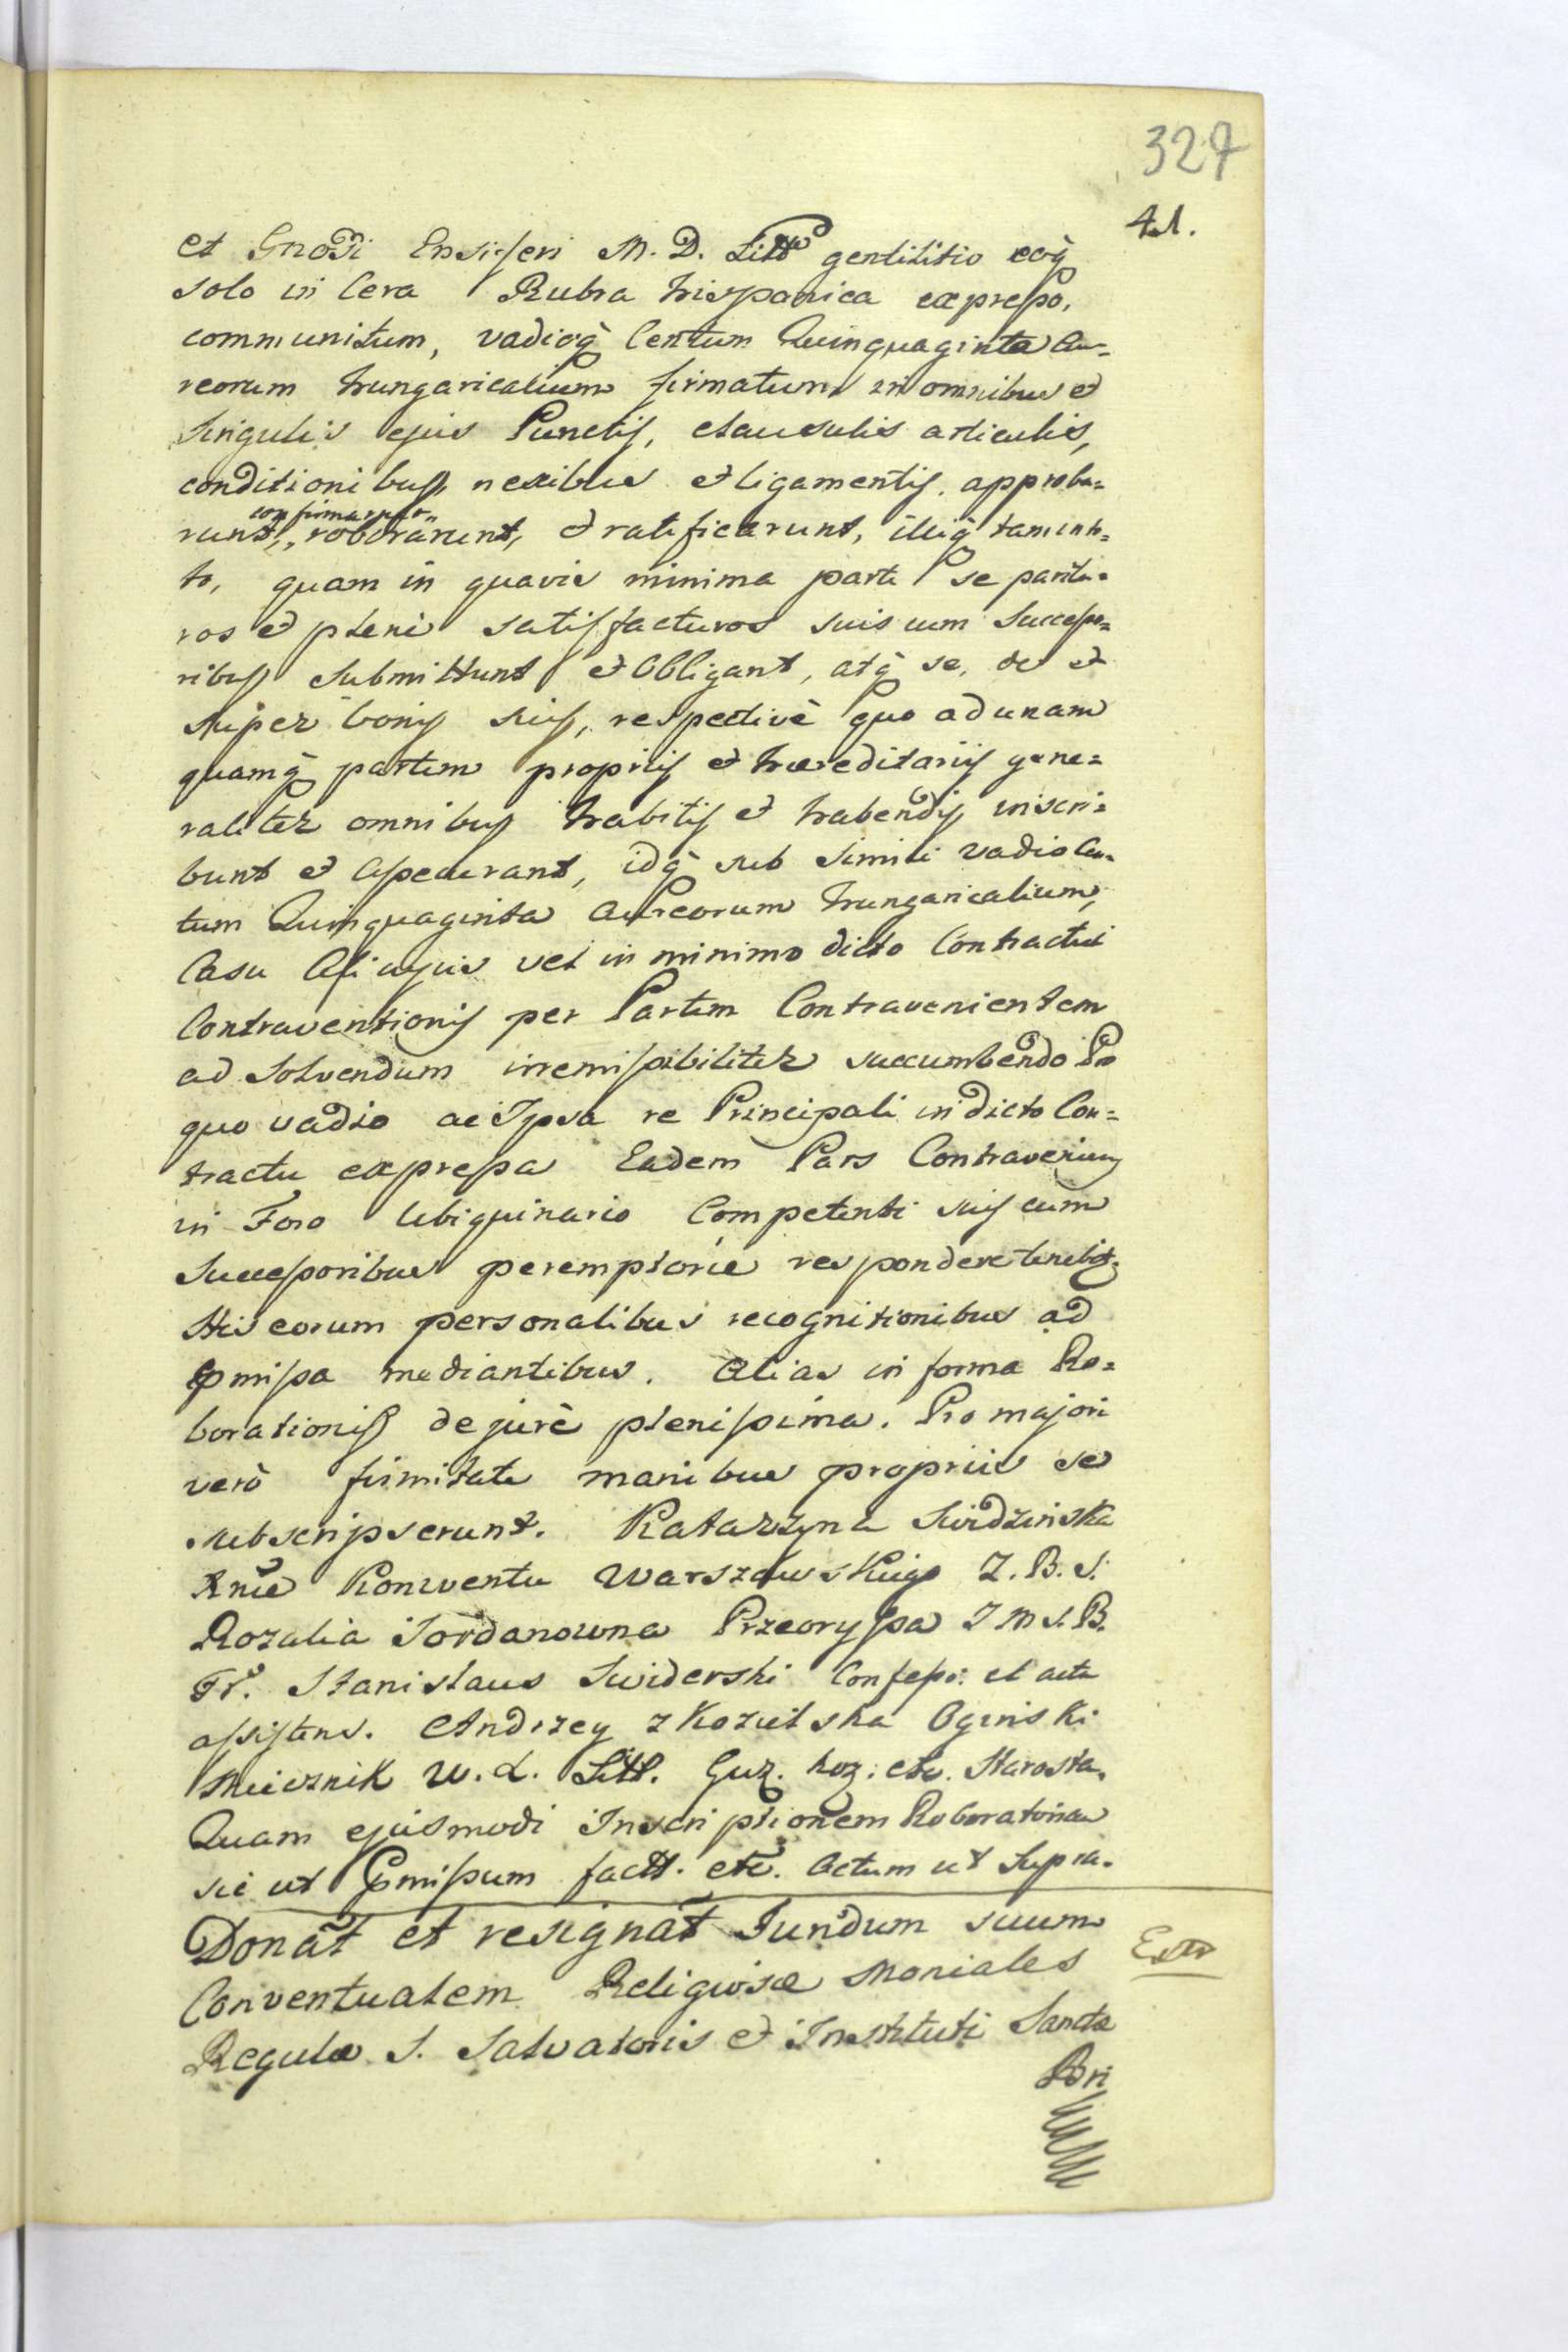 327
41.
et Gnosi Ensiferi M. D. Littw gentilitio eoq̀
solo in Cera Rubra hispanica expresso,
communitum, vadioq̀ Centum Quinquaginta Au=
reorum hungaricalium firmatum in omnibus et
Singulis ejus Punctis, clausulis articulis,
conditionibus, nexibus et ligamentis. approba=
confirmarunt
runt, roborarunt, et ratificarunt, illiq̀ tam in to=
to, quam in quavis minima parte se paritu=
ros et plenè satisfacturos suis cum Successo=
ribus submittunt et obligant, atq̀ se, de et
super bonis suis, respectivè quo ad unam
quamq̀ partem propriis et hæreditariis gene=
raliter omnibus habitis et habendis inscri=
bunt et assecurant, idq̀ sub simili vadio Cen=
tum Quinquaginta Aureorum hungaricalium,
Casu alicujus vel in minimo dicto Contractui
Contraventionis per Partem Contravenientem
ad solvendum irremissibiliter succumbendo Pro
quo vadio ac Ipsa re Principali in dicto Con=
tractu expressa Eadem Pars Contraveniens
in Foro Ubiquinario Competenti suis cum
Successoribus peremptorie respondere tenebit.
His eorum personalibus recognitionibus ad
pmissa mediantibus. Alias in forma Ro=
borationis de jurè plenissima. Pro majori
verò firmitate manibus propriis se
subscripserunt. Katarzyna Swidzinska
Xnie Konwentu Warszawskiego Z. B. S.
Rozalia Jordanowna Przeoryssa Z M S. B.
Fr. Stanislaus Swiderski Confess: et acta
assistens. Andrzey z Kozielska Oginski
Miecznik W. X. Litt. Guz. Roz: etc. Starosta.
Quam ejusmodi Inscriptionem Roboratoriam
sic ut Pmissum factt. etc. Actum ut Supra.
Donāt et resignāt Fundum suum
Extr
Conventualem Religiosæ Moniales
Regulæ S. Salvatoris et Instituti Sanctæ
Bri